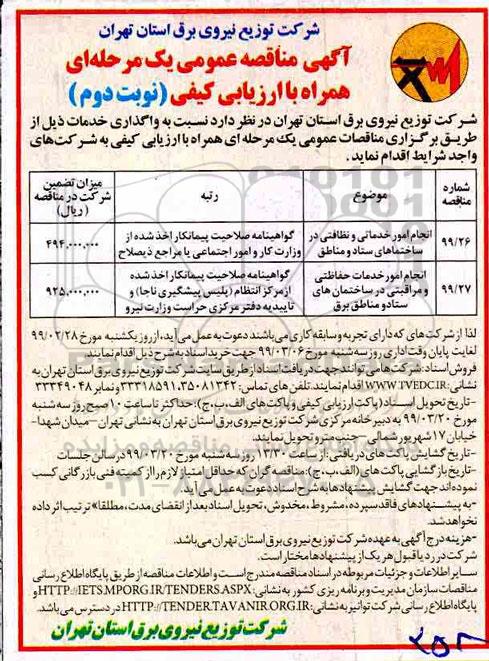 شرکت توزیع نیروی برق استان تهران
آگهی مناقصه عمومی یک مرحله‌ای
همراه با ارزیابی کیفی (نوبت دوم)
شرکت توزیع نیروی برق استان تهران در نظر دارد نسبت به واگذاری خدمات ذیل از
طریق برگزاری مناقصات عمومی یک مرحله ای همراه با ارزیابی کیفی به شرکت‌های
واجد شرایط اقدام نماید.
شماره مناقصه موضوع رتبه میزان تضمین شرکت در مناقصه (ریال)
۹۹/۲۶ انجام امور خدماتی و نظافتی در ساختماهای ستاد و مناطق گواهینامه صلاحیت پیمانکار اخذ شده از وزارت کار و امور اجتماعی یا مراجع ذیصلاح ۴۹۴,۰۰۰,۰۰۰
۹۹/۲۷ انجام امور خدمات حفاظتی و مراقبتی در ساختمان های ستاد و مناطق برق گواهینامه صلاحیت پیمانکار اخذ شده از مرکز انتظام (پلیس پیشگیری ناجا) و تاییدیه دفتر مرکزی حراست وزارت نیرو ۹۲۵,۰۰۰,۰۰۰
لذا از شرکت‌های که دارای تجربه و سابقه کاری می‌باشند دعوت به عمل می آید، از روز یکشنبه مورخ ۹۹/۰۲/۲۸
لغایت پایان وقت اداری روز سه شنبه مورخ ۹۹/۰۳/۰۶ جهت خرید اسناد به شرح ذیل اقدام نمایند.
فروش اسناد: شرکت‌ها می توانند جهت دریافت اسناد از طریق سایت شرکت توزیع نیروی برق استان تهران به
نشانی: WWW.TVEDC.IR اقدام نمایند. تلفن های تماس: ۳۵۰۸۱۳۴۲، ۳۳۳۱۸۵۹۱ و نمابر ۳۳۳۴۹۰۴۸
-تاریخ تحویل اسناد (پاکت ارزیابی کیفی و پاکت‌های الف، ب، ج): حداکثر تا ساعت ۱۰ صبح روز سه شنبه
مورخ ۹۹/۰۳/۲۰ به دبیرخانه مرکزی شرکت توزیع نیروی برق استان تهران به نشانی تهران-میدان شهدا-
خیابان ۱۷ شهریور شمالی-جنب مترو تحویل نمایند.
-تاریخ گشایش پاکت‌های دریافتی: از ساعت ۱۳/۳۰ روز سه شنبه مورخ ۹۹/۰۳/۲۰ در سالن جلسات
-تاریخ بازگشایی پاکت‌های (الف، ب، ج): مناقصه گران که حداقل امتیاز لازم را از کمیته فنی بازرگانی کسب
نموده اند جهت گشایش پیشنهادها به شرح اسناد دعوت به عمل می آید.
-به پیشنهادهای فاقد سپرده، مشروط، مخدوش، تحویل اسناد بعد از انقضای مدت، مطلقا» ترتیب اثر داده
نخواهد شد.
-هزینه درج آگهی به عهده شرکت توزیع نیروی برق استان تهران می‌باشد.
شرکت در رد یا قبول هر یک از پیشنهادها مختار است.
سایر اطلاعات و جزئیات مربوطه در اسناد مناقصه مندرج است و اطلاعات مناقصه از طریق پایگاه اطلاع رسانی
مناقصات سازمان مدیریت و برنامه ریزی کشور به نشانی: HTTP://IETS.MPORG.IR/TENDERS.ASPX و
پایگاه اطلاع رسانی شرکت توانیر به نشانی: HTTP://TENDER.TAVANIR.ORG.IR در دسترس می باشد.
شرکت توزیع نیروی برق استان تهران